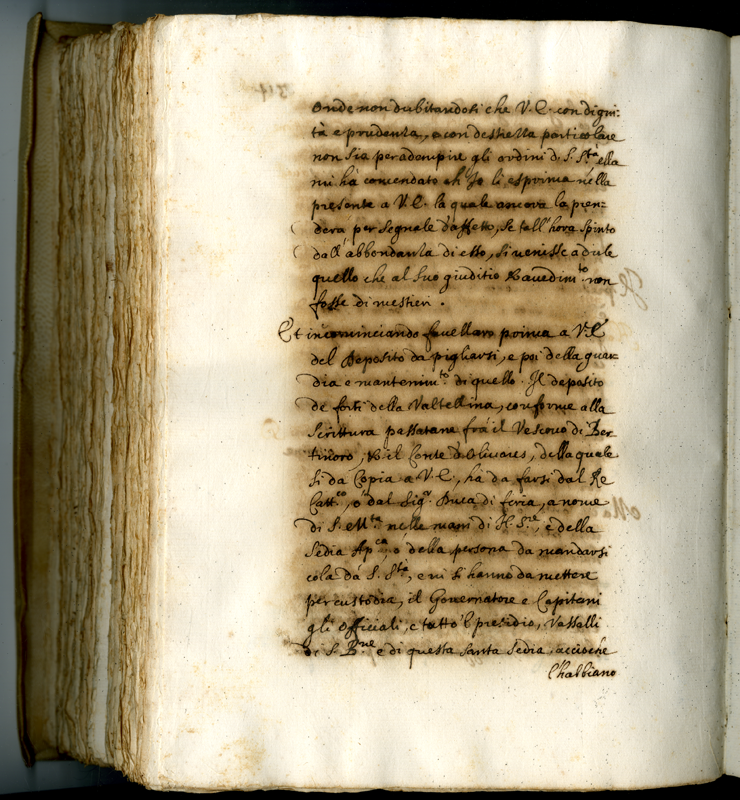 Onde non dubitandosi che V. E. con digni:
tà e prudenza, e con destrezza particolare
non sia per adempire gli ordini di S. S.tà ella
mi hà comendato ch'Io li esprima nella
presente a V. E. la quale ancora la pren=
derà per segnale d'affetto, se tall'hora spinto
dall'abbondanza di esso, si venisse a dirle
quello che al suo giuditio & avedim.to non
fosse di mestieri.
Et incominciando favellar prima a V. E.
del Deposito da pigliarsi, e poi della guar
dia e mantenim.to di quello. Il deposito
de forti della Valtellina, conforme alla
Scrittura passatane frà il Vescovo di Ber
tinoro, & il Conte d'Olivares, della quale
si da Copia a V. E., hà da farsi dal Re
Catt.co, ò dal Sig.r Duca di feria, a nome
di S. M.tà nelle mani di N. S.re, e della
Sedia Ap.ca, o della persona da mandarsi
colà dà S. S.tà, e vi si hanno da mettere
per custodia, il Governatore e Capitani
gli Officiali, e tutto'l presidio, Vassalli
di S. B.ne e di questa santa Sedia, accioche
l'habbiano